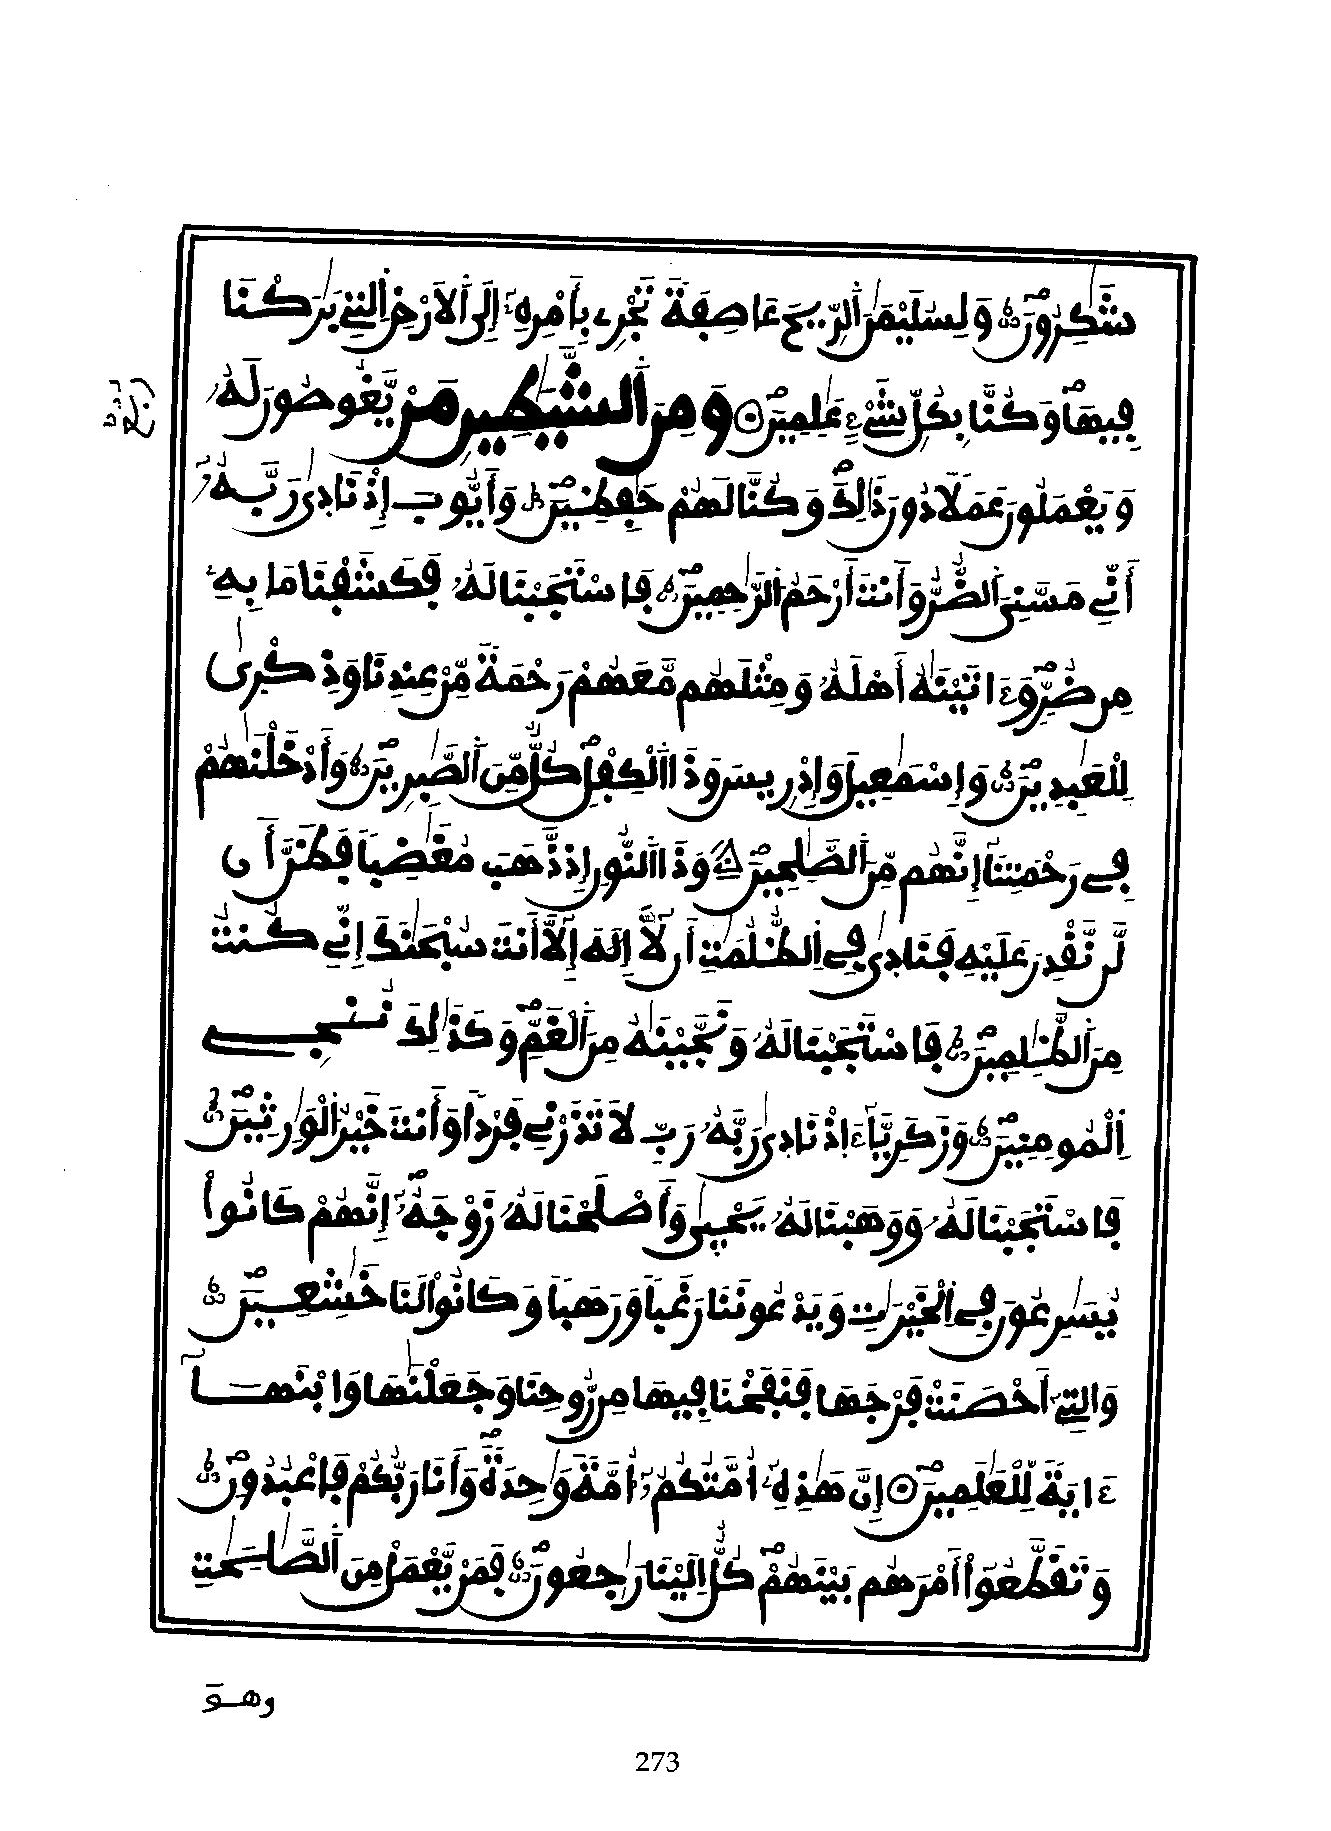 شَٰكِرُونَ وَلِسُلَيْمَٰنَ اَ۬لرِّيحَ عَاصِفَةٗ تَجْرِے بِأَمْرِهِۦٓ إِلَى اَ۬لَارْضِ اِ۬لتِے بَٰرَكْنَا
فِيهَا وَكُنَّا بِكُلِّ شَےْءٍ عَٰلِمِينَ وَمِنَ اَ۬لشَّيَٰطِينِ مَنْ يَّغُوصُونَ لَهُۥ
وَيَعْمَلُونَ عَمَلاٗ دُونَ ذَٰلِكَ وَكُنَّا لَهُمْ حَٰفِظِينَ وَأَيُّوبَ إِذْ نَادَىٰ رَبَّهُۥٓ
أَنِّے مَسَّنِيَ اَ۬لضُّرُّ وَأَنتَ أَرْحَمُ اُ۬لرَّٰحِمِينَ فَاسْتَجَبْنَا لَهُۥ فَكَشَفْنَا مَا بِهِۦ
مِن ضُرٍّ وَءَاتَيْنَٰهُ أَهْلَهُۥ وَمِثْلَهُم مَّعَهُمْ رَحْمَةٗ مِّنْ عِندِنَا وَذِكْرَىٰ
لِلْعَٰبِدِينَ وَإِسْمَٰعِيلَ وَإِدْرِيسَ وَذَا اَ۬لْكِفْلِ كُلّٞ مِّنَ اَ۬لصَّٰبِرِينَ وَأَدْخَلْنَٰهُمْ
فِے رَحْمَتِنَآ إِنَّهُم مِّنَ اَ۬لصَّٰلِحِينَ وَذَا اَ۬لنُّونِ إِذ ذَّهَبَ مُغَٰضِباٗ فَظَنَّ أَن
لَّن نَّقْدِرَ عَلَيْهِ فَنَادَىٰ فِے اِ۬لظُّلُمَٰتِ أَن لَّآ إِلَٰهَ إِلَّآ أَنتَ سُبْحَٰنَكَ إِنِّے كُنتُ
مِنَ اَ۬لظَّٰلِمِينَ فَاسْتَجَبْنَا لَهُۥ وَنَجَّيْنَٰهُ مِنَ اَ۬لْغَمِّ وَكَذَٰلِكَ نُۨجِے
اِ۬لْمُومِنِينَ وَزَكَرِيَّآءَ اِذْ نَادَىٰ رَبَّهُۥ رَبِّ لَا تَذَرْنِے فَرْداٗ وَأَنتَ خَيْرُ اُ۬لْوَٰرِثِينَ
فَاسْتَجَبْنَا لَهُۥ وَوَهَبْنَا لَهُۥ يَحْيَىٰ وَأَصْلَحْنَا لَهُۥ زَوْجَهُۥٓ إِنَّهُمْ كَانُواْ
يُسَٰرِعُونَ فِے اِ۬لْخَيْرَٰتِ وَيَدْعُونَنَا رَغَباٗ وَرَهَباٗ وَكَانُواْ لَنَا خَٰشِعِينَ
وَالتِےٓ أَحْصَنَتْ فَرْجَهَا فَنَفَخْنَا فِيهَا مِن رُّوحِنَا وَجَعَلْنَٰهَا وَابْنَهَآ
ءَايَةٗ لِّلْعَٰلَمِينَ إِنَّ هَٰذِهِۦٓ أُمَّتُكُمُۥٓ أُمَّةٗ وَٰحِدَةٗ وَأَنَا رَبُّكُمْ فَاعْبُدُونِ
وَتَقَطَّعُوٓاْ أَمْرَهُم بَيْنَهُمْ كُلٌّ اِلَيْنَا رَٰجِعُونَ فَمَنْ يَّعْمَلْ مِنَ اَ۬لصَّٰلِحَٰتِ
وهوَ
273